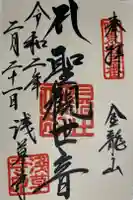 奉拝
金龍山
聖観世音
令和二年
二月二十一日
浅草寺